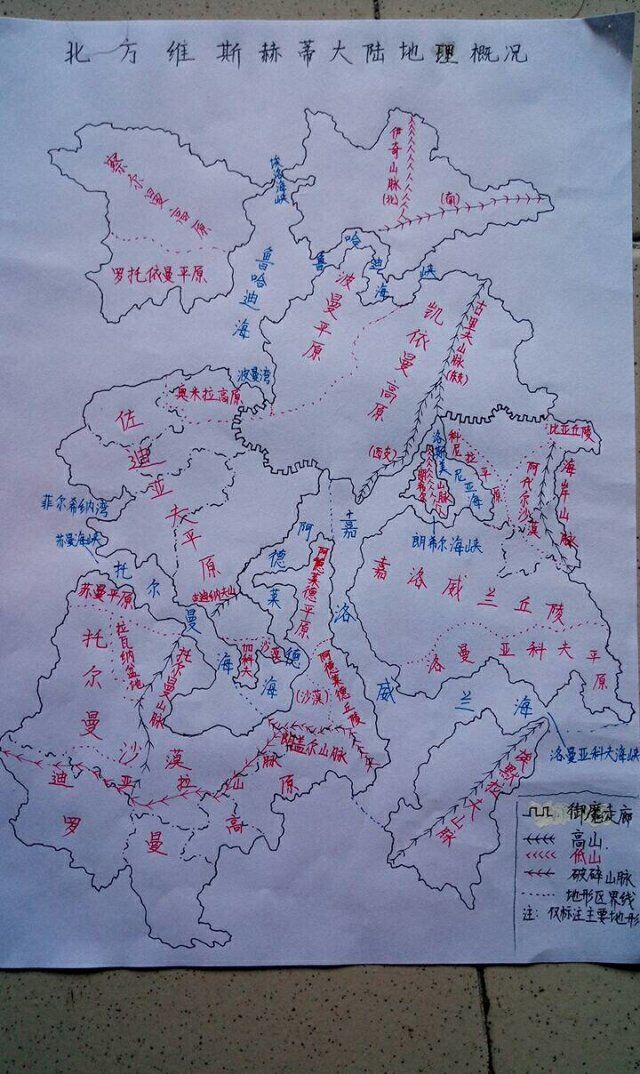 北方维斯赫蒂大陆地理概况
伊奇山脉
(北)
(南)
察尔曼高原
罗托依曼平原
鲁哈迪海
鲁哈迪海峡
波曼平原
凯依曼高原
古里夫山脉
(东支)
(西支)
波曼湾
奥米拉高原
佐迪亚夫平原
菲尔希纳湾
苏曼海峡
科尼拉平原
尼亚海
比亚丘陵
海岸山脉
阿代尔沙漠
朗希尔海峡
嘉洛威兰丘陵
洛曼亚科夫平原
嘉洛威兰海
阿德莱德海
阿德莱德平原
阿德莱德丘陵
(沙漠)
托尔曼海
苏曼平原
拉瓦纳盆地
托尔曼山脉
托尔曼沙漠
加科夫
沙漠
迪亚拉山脉
罗曼高原
洛曼亚科夫海峡
御魔走廊
高山
低山
破碎山脉
地形区界线
注:仅标注主要地形